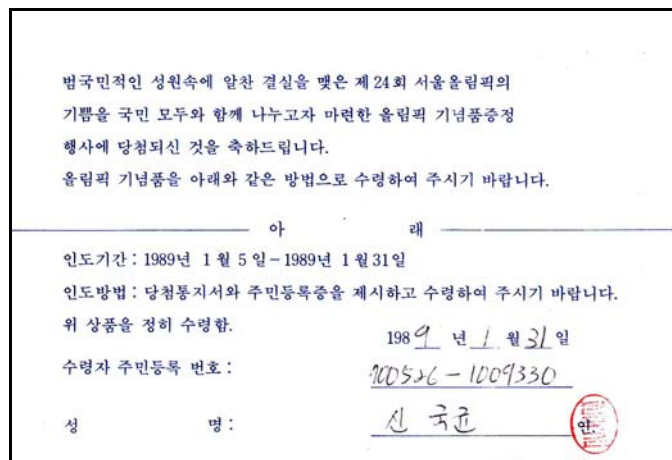 범국민적인 성원속에 알찬 결실을 맺은 제24회 서울올림픽의
기쁨을 국민 모두와 함께 나누고자 마련한 올림픽 기념품증정
행사에 당첨되신 것을 축하드립니다.
올림픽 기념품을 아래와 같은 방법으로 수령하여 주시기 바랍니다.
아 래
인도기간 : 1989년 1월 5일-1989년 1월31일
인도방법 : 당첨통지서와 주민등록증을 제시하고 수령하여 주시기 바랍니다.
위 상품을 정히 수령함.
1989년 1월 31일
수령자 주민등록 번호 : 700526-1009330
성 명 : 신국균 인.